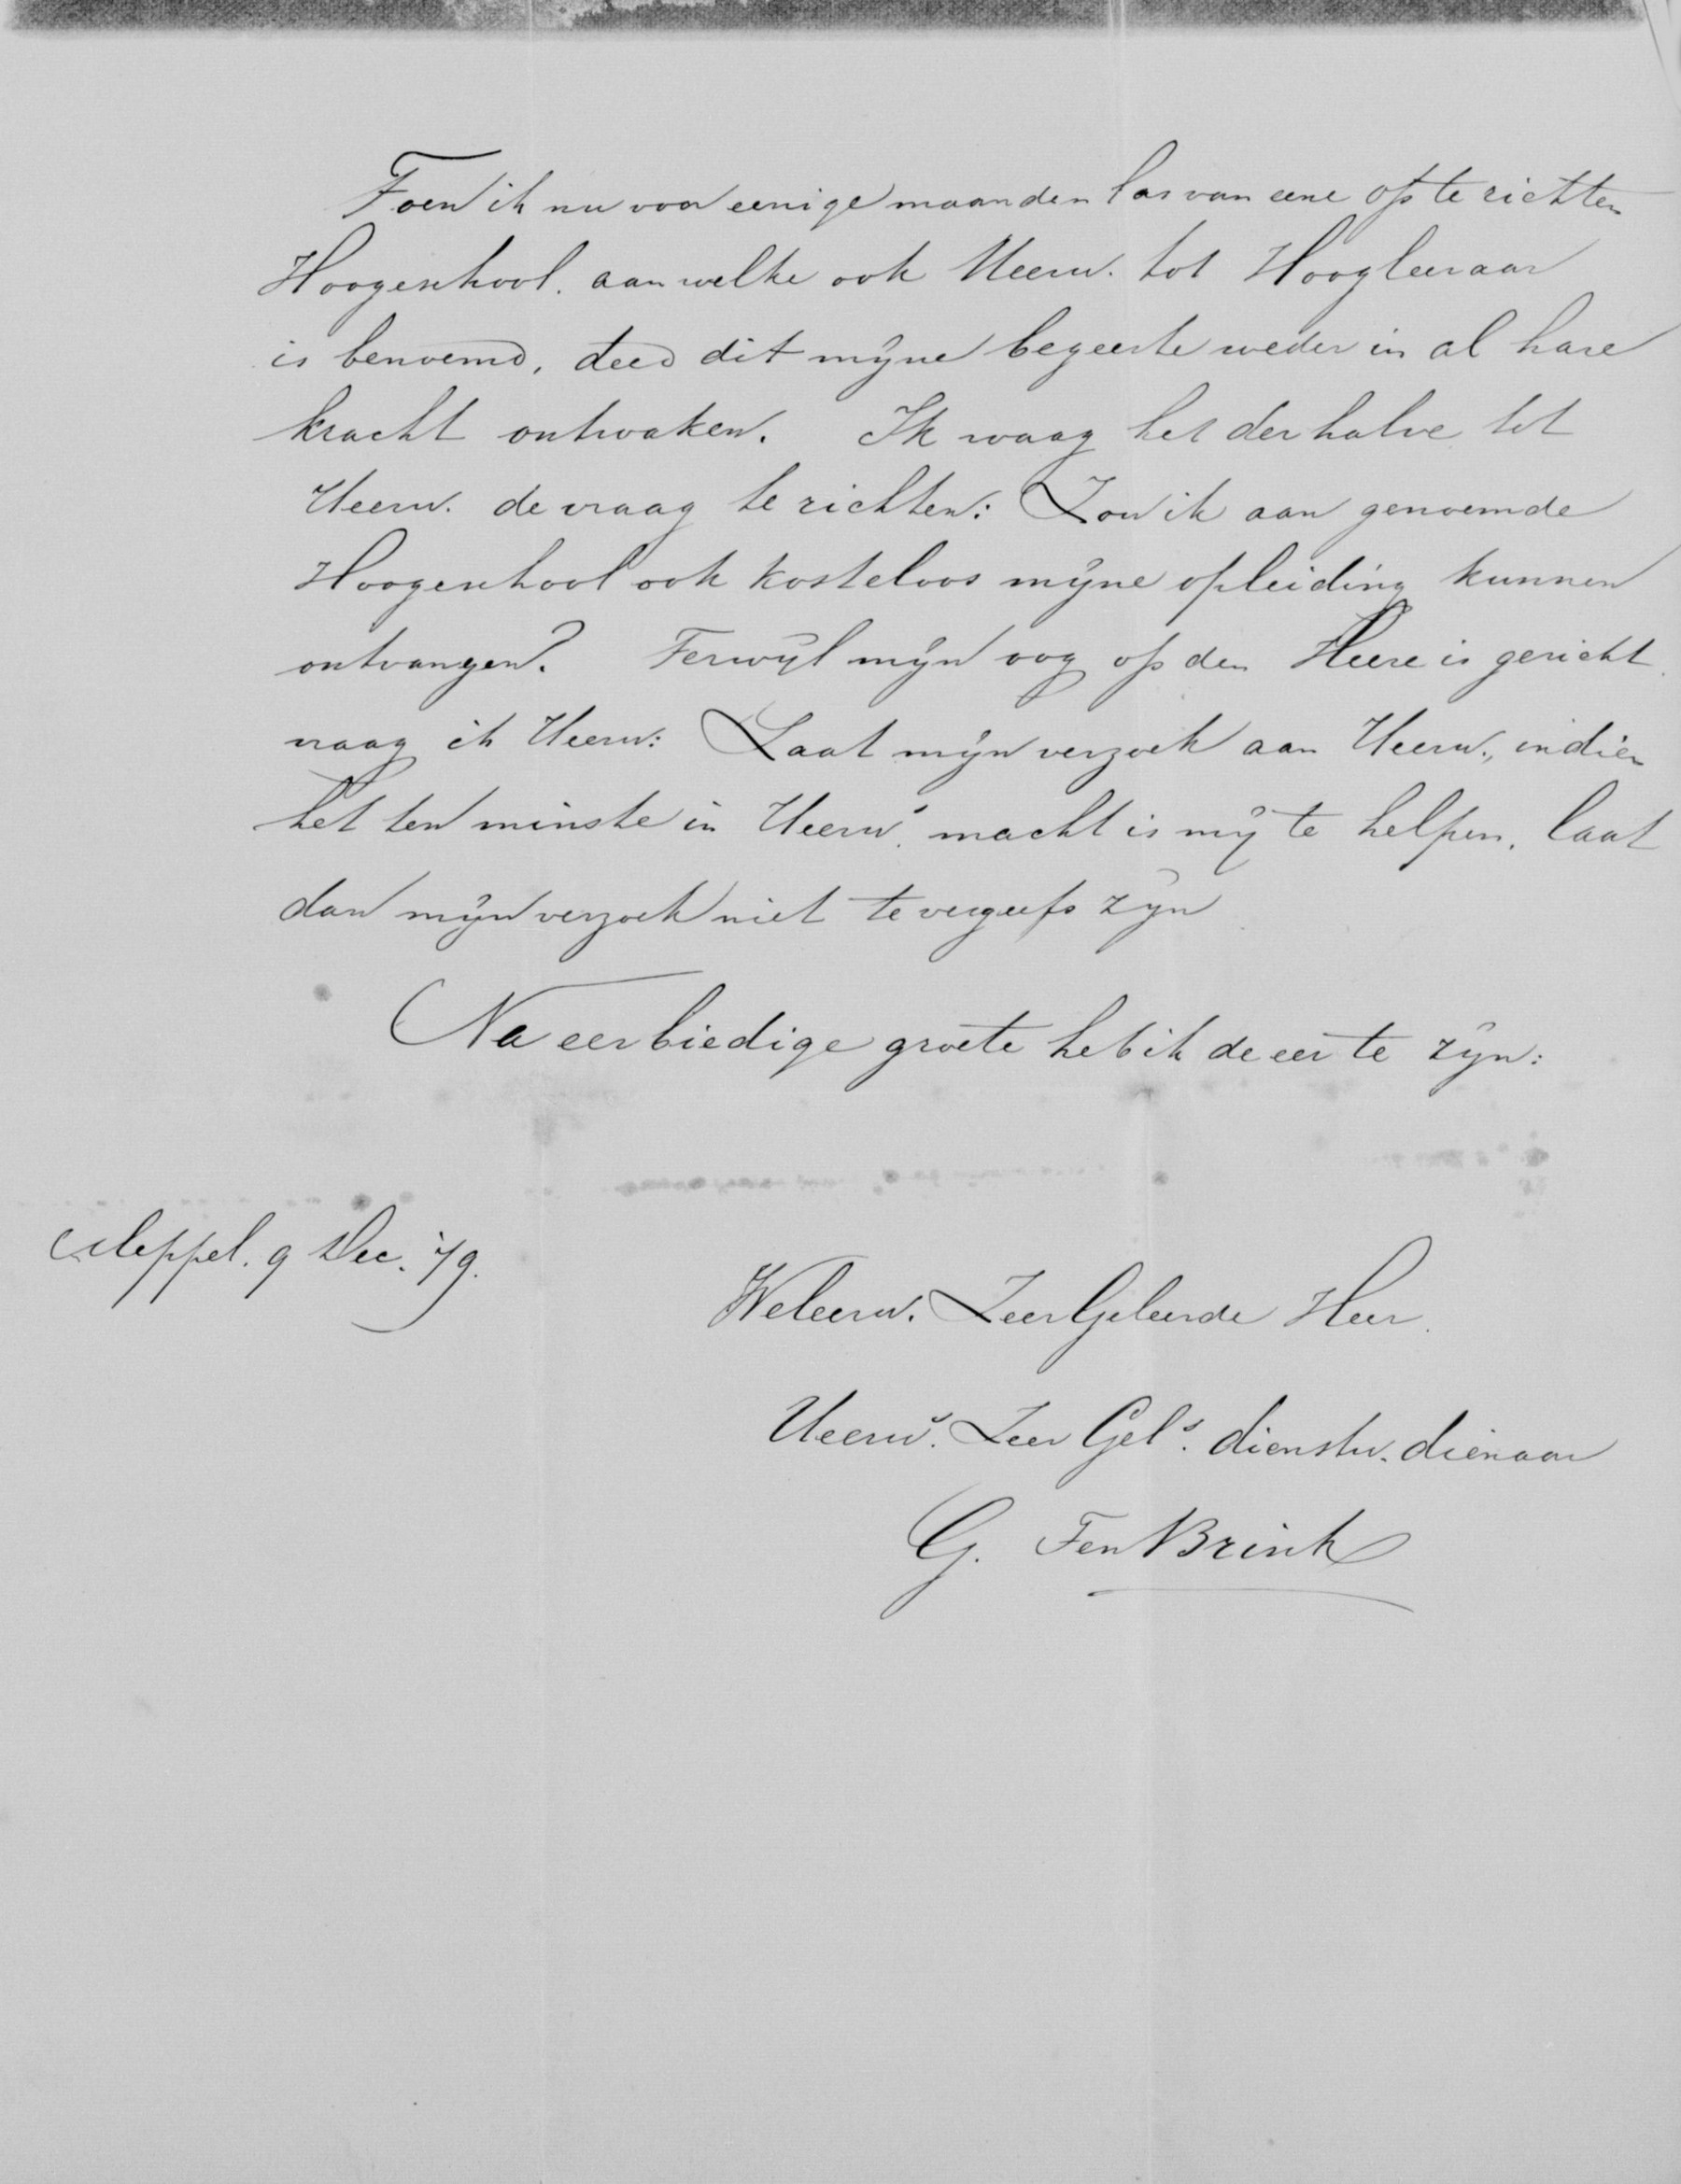 Toen ik nu voor eenige maanden las van eene op te richten
Hoogeschool, aan welke ook Ueerw. tot Hoogleeraar
is benoemd, deed dit mijne begeerte weder in al hare
kracht ontwaken. Ik waag het derhalve tot
Ueerw. de vraag te richten: Zou ik aan genoemde
Hoogeschool ook kosteloos mijne opleiding kunnen
ontvangen? Terwijl mijn oog op den Heere is gericht
vraag ik Ueerw: Laat mijn verzoek aan Ueerw., indien
het ten minste in Ueerws. macht is mij te helpen, laat
dan mijn verzoek niet te vergeefs zijn.
Na eerbiedige groete heb ik de eer te zijn:
Meppel. 9 Dec. '79.
Weleerw. Zeer Geleerde Heer.
Ueerws. Zeer Gels. dienstw. dienaar
G. Ten Brink